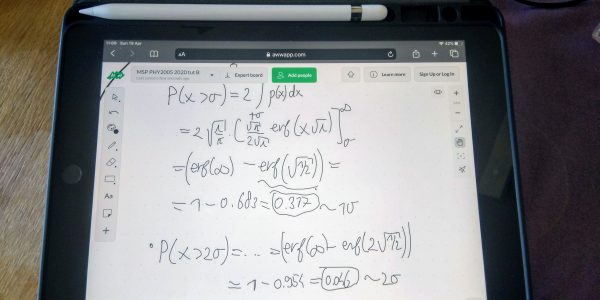 11:09 Sun 19 Apr 42%
AA awwapp.com
MSP PHY2005 2020 tut B Expert board Add people Learn more Sign Up or Log In
P(x>σ) = 2 ∫ p(x)dx
+σ
= 2 √(λ/π) · [ √π/(2√λ) erf(x√λ) ]_σ^∞
= (erf(∞) - erf(√1/2)) =
= 1 - 0.683 = 0.317 ~ 1σ
• P(x>2σ) = ... = (erf(∞) - erf(2√1/2))
= 1 - 0.954 = 0.046 ~ 2σ
Aa